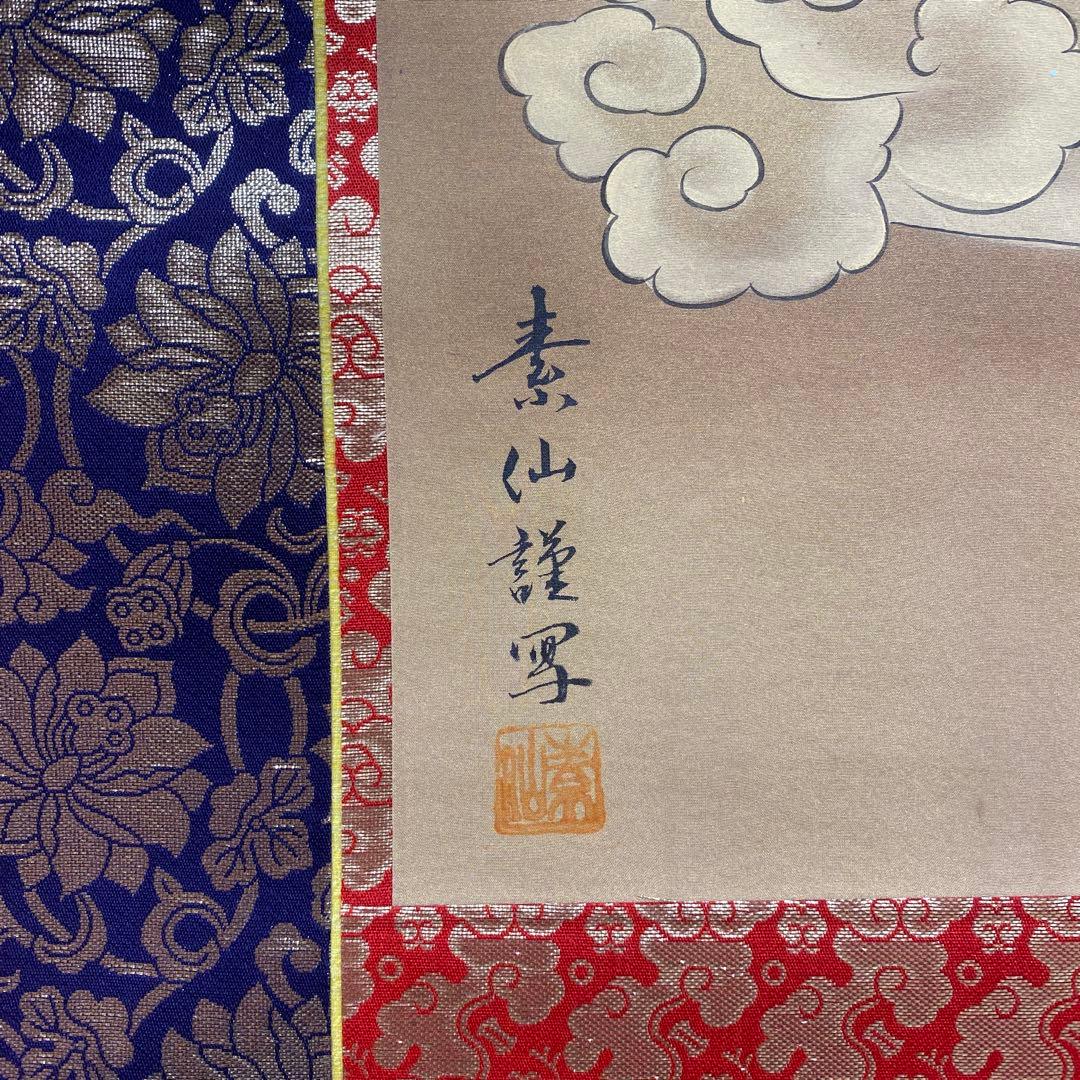 素仙謹写
素仙